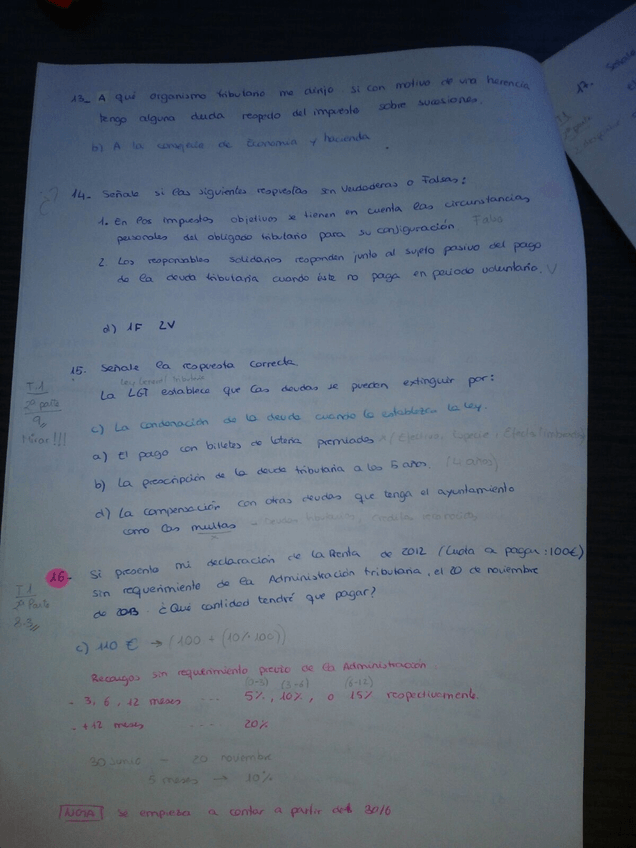 13_ A qué organismo tributario me dirijo si con motivo de una herencia
tengo alguna duda respecto del impuesto sobre sucesiones.
b) A la consejería de Economía y hacienda
14- Señale si las siguientes respuestas son Verdaderas o Falsas:
1. En los impuestos objetivos se tienen en cuenta las circunstancias
personales del obligado tributario para su configuración Falso
2. Los responsables solidarios responden junto al sujeto pasivo del pago
de la deuda tributaria cuando éste no paga en periodo voluntario. V
d) 1F 2V
15. Señale la respuesta correcta
Ley General tributaria
La LGT establece que las deudas se puedan extinguir por:
T1
2ª parte
9
c) La condonación de la deuda cuando lo establezca la ley.
a) El pago con billetes de lotería premiados
b) La prescripción de la deuda tributaria a los 5 años. (4 años)
d) La compensación con otras deudas que tenga el ayuntamiento
como las multas
16- Si presento mi declaración de la Renta de 2012 (Cuota a pagar: 100€)
sin requerimiento de la Administración tributaria, el 20 de noviembre
de 2013. ¿Qué cantidad tendré que pagar?
T1
2ª Parte
8.3
c) 110 € → (100 + (10%·100))
Recargos sin requerimiento previo de la Administración
(1-3) (3-6) (6-12)
- 3, 6, 12 meses ... 5%, 10%, o 15% respectivamente.
- +12 meses .... 20%
30 junio - 20 noviembre
5 meses → 10%
NOTA se empieza a contar a partir del 30/6
17.
Señale